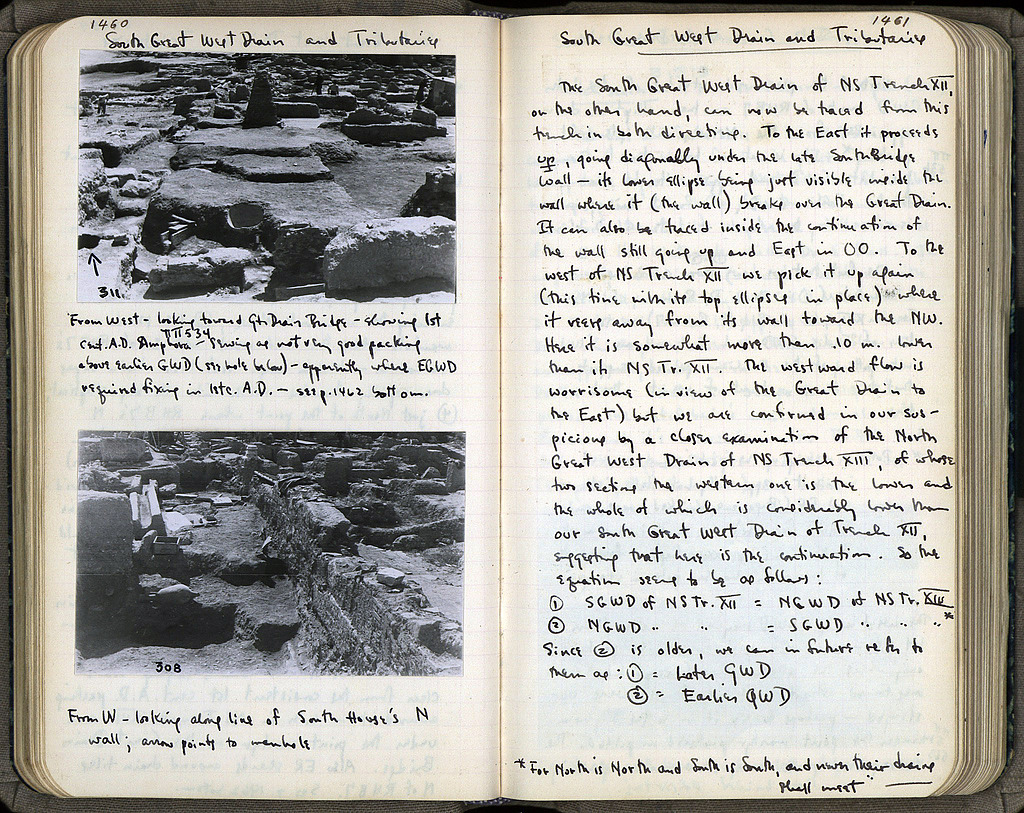 1460
South Great West Drain and Tributaries
311.
From West - looking toward Gt Drain Bridge - showing 1st
ΠΠ534
cent. A.D. Amphora - serving as not very good packing
above earlier GWD (see hole below) - apparently where EGWD
required fixing in 1st c. A.D. - see p. 1462 bottom.
308
From W - looking along line of South House's N
wall; arrow points to manhole
1461
South Great West Drain and Tributaries
The South Great West Drain of NS Trench XII,
on the other hand, can now be traced from this
trench in both directions. To the East it proceeds
up, going diagonally under the late South Bridge
Wall - its lower ellipse being just visible inside the
wall where it (the wall) breaks over the Great Drain.
It can also be traced inside the continuation of
the wall still going up and East in OO. To the
west of NS Trench XII we pick it up again
(this time with its top ellipse in place) where
it veers away from its wall toward the NW.
Here it is somewhat more than .10 m. lower
than in NS Tr. XII. The westward flow is
worrisome (in view of the Great Drain to
the East) but we are confirmed in our sus-
picions by a closer examination of the North
Great West Drain of NS Trench XIII, of whose
two sections the western one is the lower and
the whole of which is considerably lower than
our South Great West Drain of Trench XII,
suggesting that here is the continuation. So the
equation seems to be as follows:
① SGWD of NS Tr. XII = NGWD of NS Tr. XIII
② NGWD " " = SGWD " " " *
Since ② is older, we can in future refer to
them as: ① = Later GWD
② = Earlier GWD
* For North is North and South is South, and never their drains
shall meet"